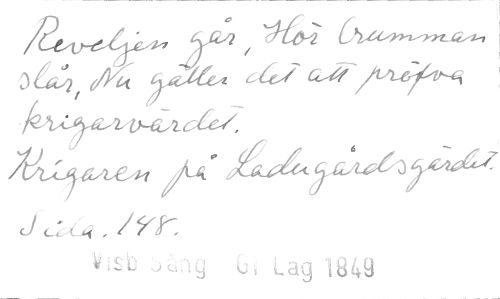 Reveljen går, Hör trumman
slår, Nu gäller det att pröfva
krigarvärdet.
Krigaren på Ladugårdsgärdet.
Sida. 148.
Visb Sång Gl Lag 1849